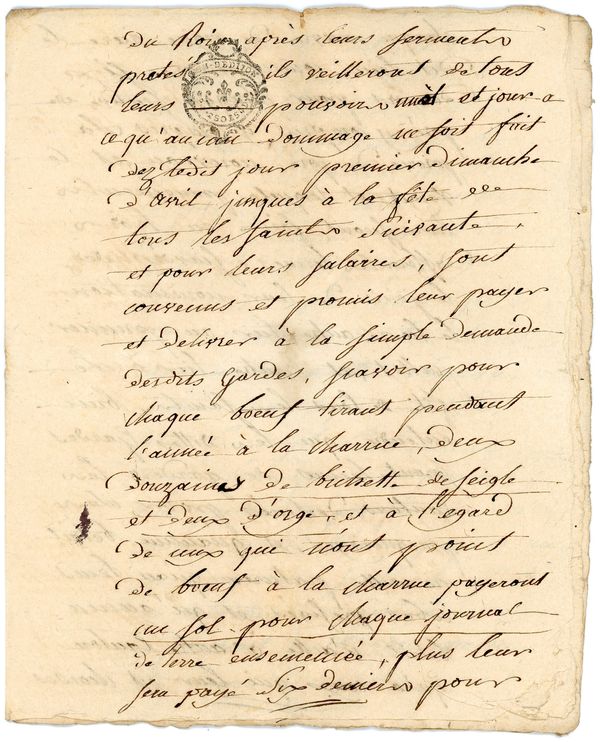 du Roi après leurs serments
pretés ils veilleront de tous
leurs pouvoirs nuit et jour a
ce qu'aucun dommage ne soit fait
dez ledit jour premier dimanche
d'avril jusques à la fête de
tous les saints suivante,
et pour leurs salaires, sont
convenus et promis leur payer
et delivrer à la simple demande
desdits Gardes, scavoir pour
chaque boeuf tirant pendant
l'année à la charrue, deux
douzaines de bichette de seigle
et deux d'orge, et à l'egard
de ceux qui n'ont point
de boeuf à la charrue payeront
un sol pour chaque journal
de terre ensemencée, plus leur
sera payé six deniers pour